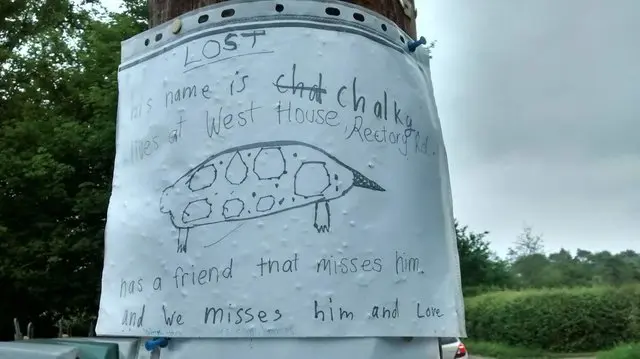 LOST
his name is chd chalky
lives at West House, Rectory Rd.
has a friend that misses him.
and we misses him and Love